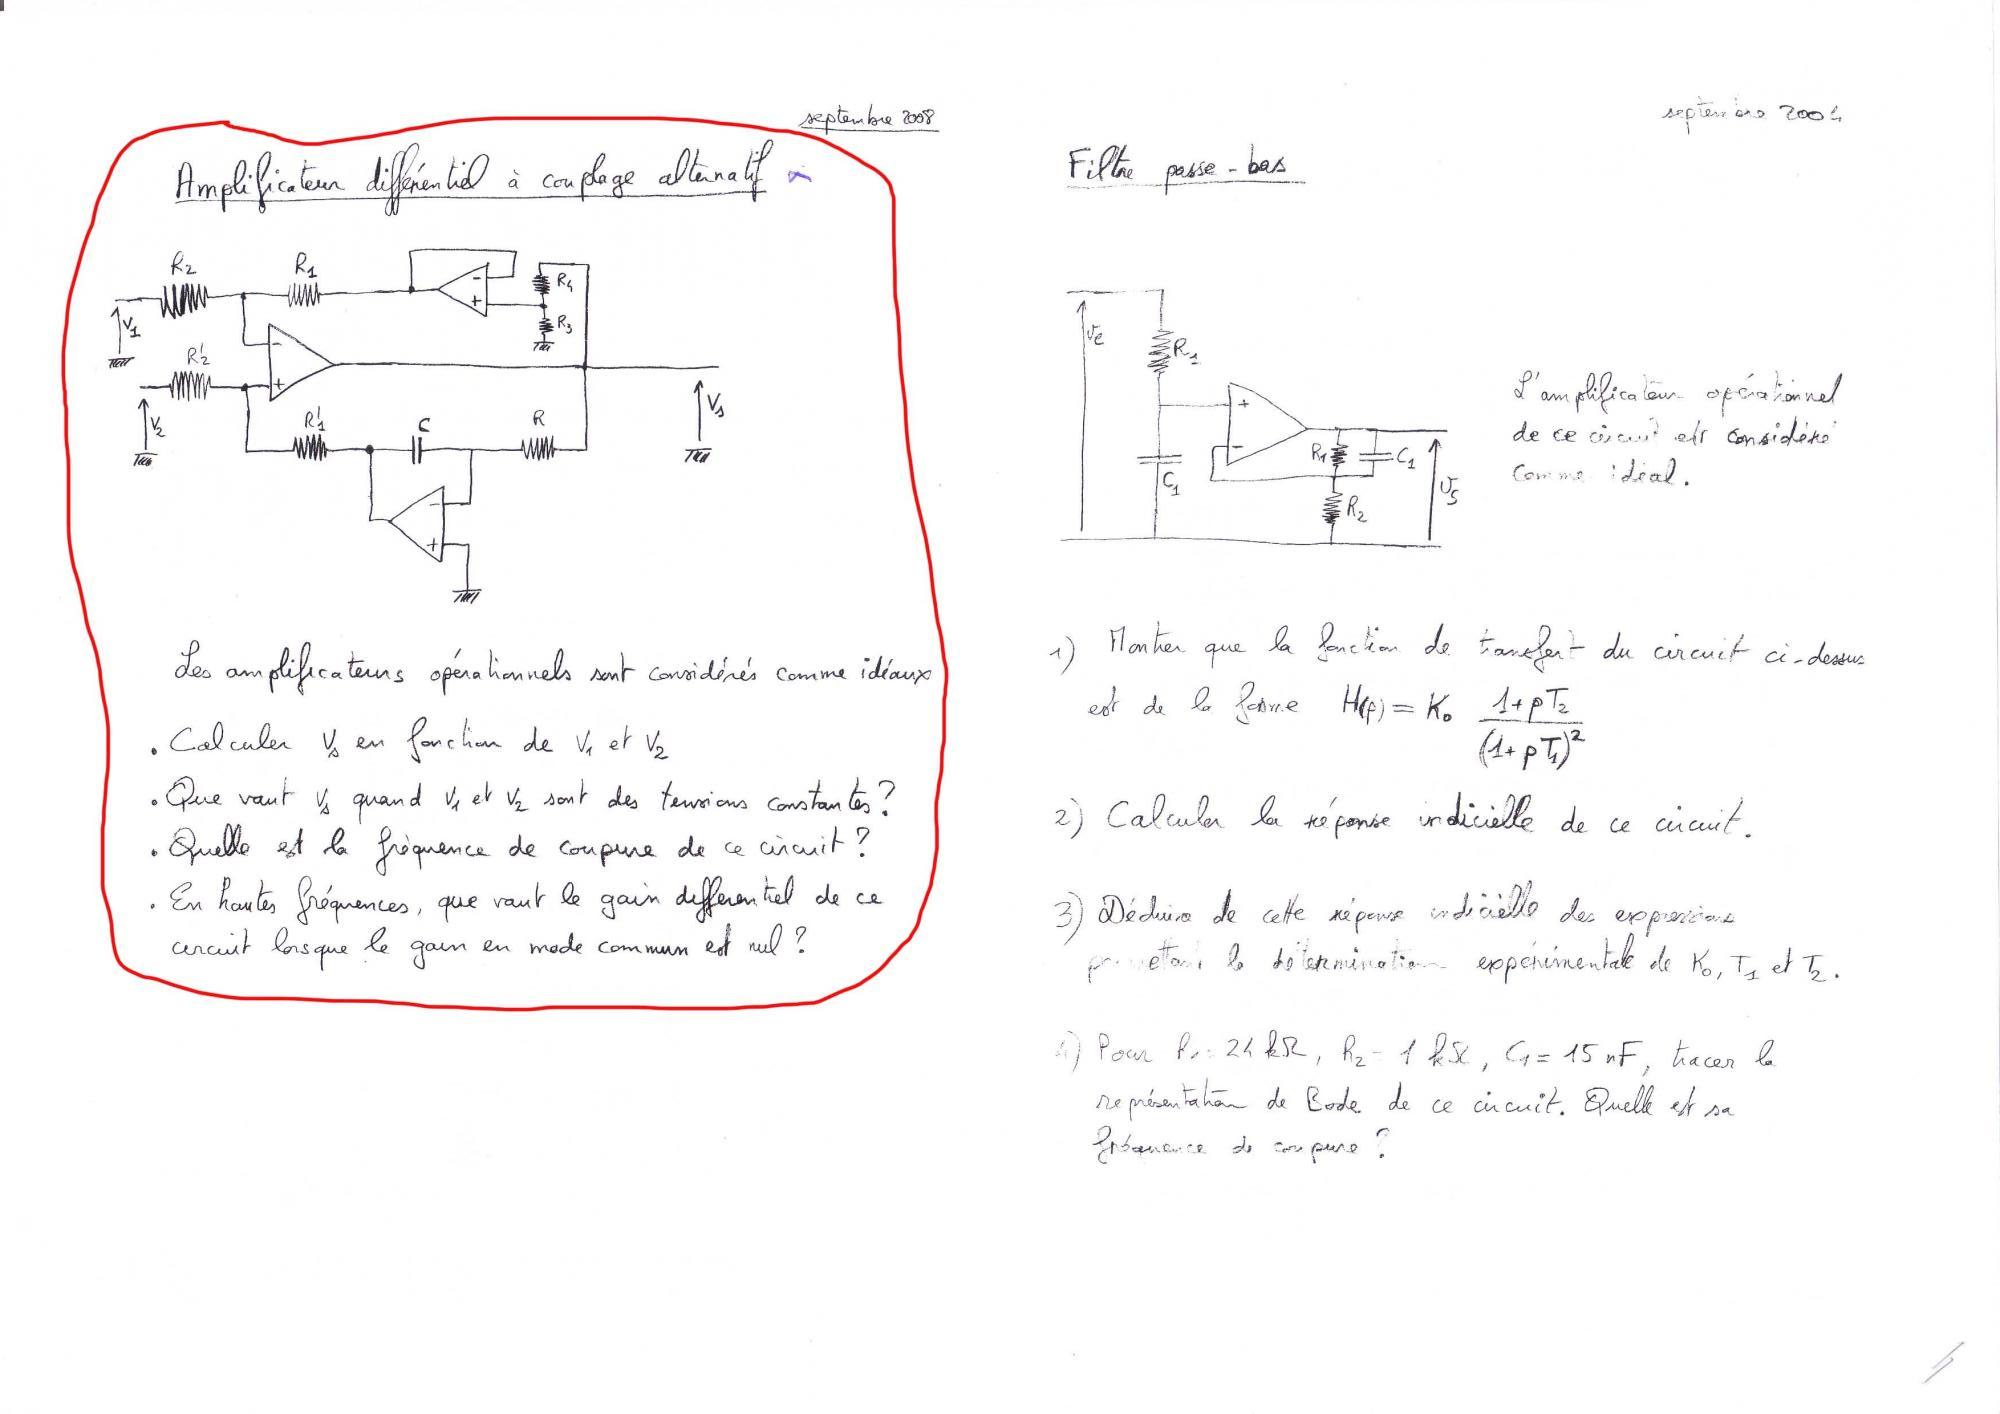 septembre 2008
Amplificateur différentiel à couplage alternatif
R2
R1
R4
R3
V1
R'2
V2
R'1
C
R
Vs
-
+
-
+
-
+
Les amplificateurs opérationnels sont considérés comme idéaux
. Calculer Vs en fonction de V1 et V2
. Que vaut Vs quand V1 et V2 sont des tensions constantes?
. Quelle est la fréquence de coupure de ce circuit?
. En hautes fréquences, que vaut le gain differentiel de ce
circuit lorsque le gain en mode commun est nul?
septembre 2004
Filtre passe-bas
ve
R1
+
-
C1
R1
C1
R2
vs
L'amplificateur opérationnel
de ce circuit est considéré
comme idéal.
1) Montrer que la fonction de transfert du circuit ci-dessus
est de la forme H(p) = K0 (1+pT2)/(1+pT1)²
2) Calculer la réponse indicielle de ce circuit.
3) Déduire de cette réponse indicielle des expressions
permettant la détermination expérimentale de K0, T1 et T2.
4) Pour R1 = 24 kΩ, R2 = 1 kΩ, C1 = 15 nF, tracer la
représentation de Bode de ce circuit. Quelle est sa
fréquence de coupure?